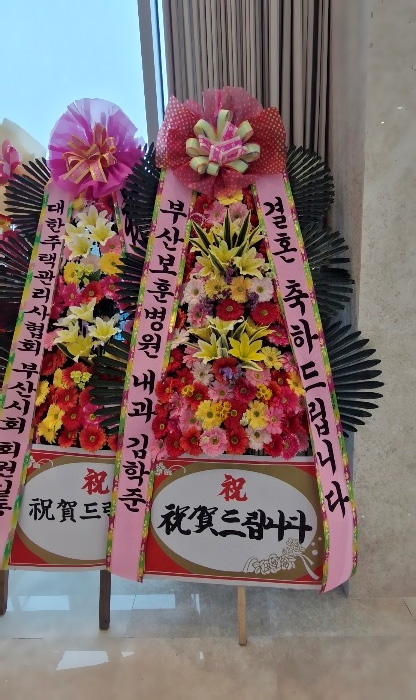 대한주택관리사협회 부산시회 회원일동
祝
祝賀드립
부산보훈병원 내과 김학준
결혼 축하드립니다
祝
祝賀드립니다